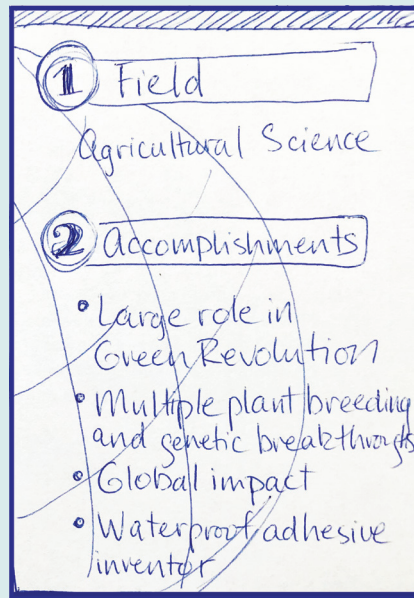 1 Field
Agricultural Science
2 Accomplishments
• Large role in
Green Revolution
• Multiple plant breeding
and genetic breakthroughs
• Global impact
• Waterproof adhesive
inventor